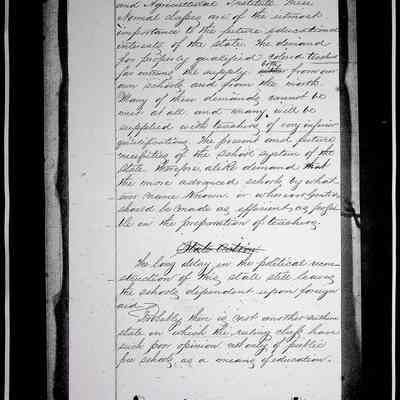 and Agricultural Institute these
Normal classes are of the utmost
importance to the future educational
interests of the state. The demand
for properly qualified colored teachers
far outruns the supply both from our
own schools and from the north.
Many of these demands cannot be
met at all and many will be
supplied with teachers of very inferior
qualifications. The present and future
necessities of the school system of the
state therefore, alike demand that
the more advanced schools by what
ever name known or wherever located
should be made as efficient, as possi
ble in the preparation of teachers.
State Action
The long delay in the political recon
struction of this state still leaves
the schools dependent upon foreign
aid.
Probably there is not another southern
state in which the ruling class have
such poor opinion not only of public
free schools, as a means of education.